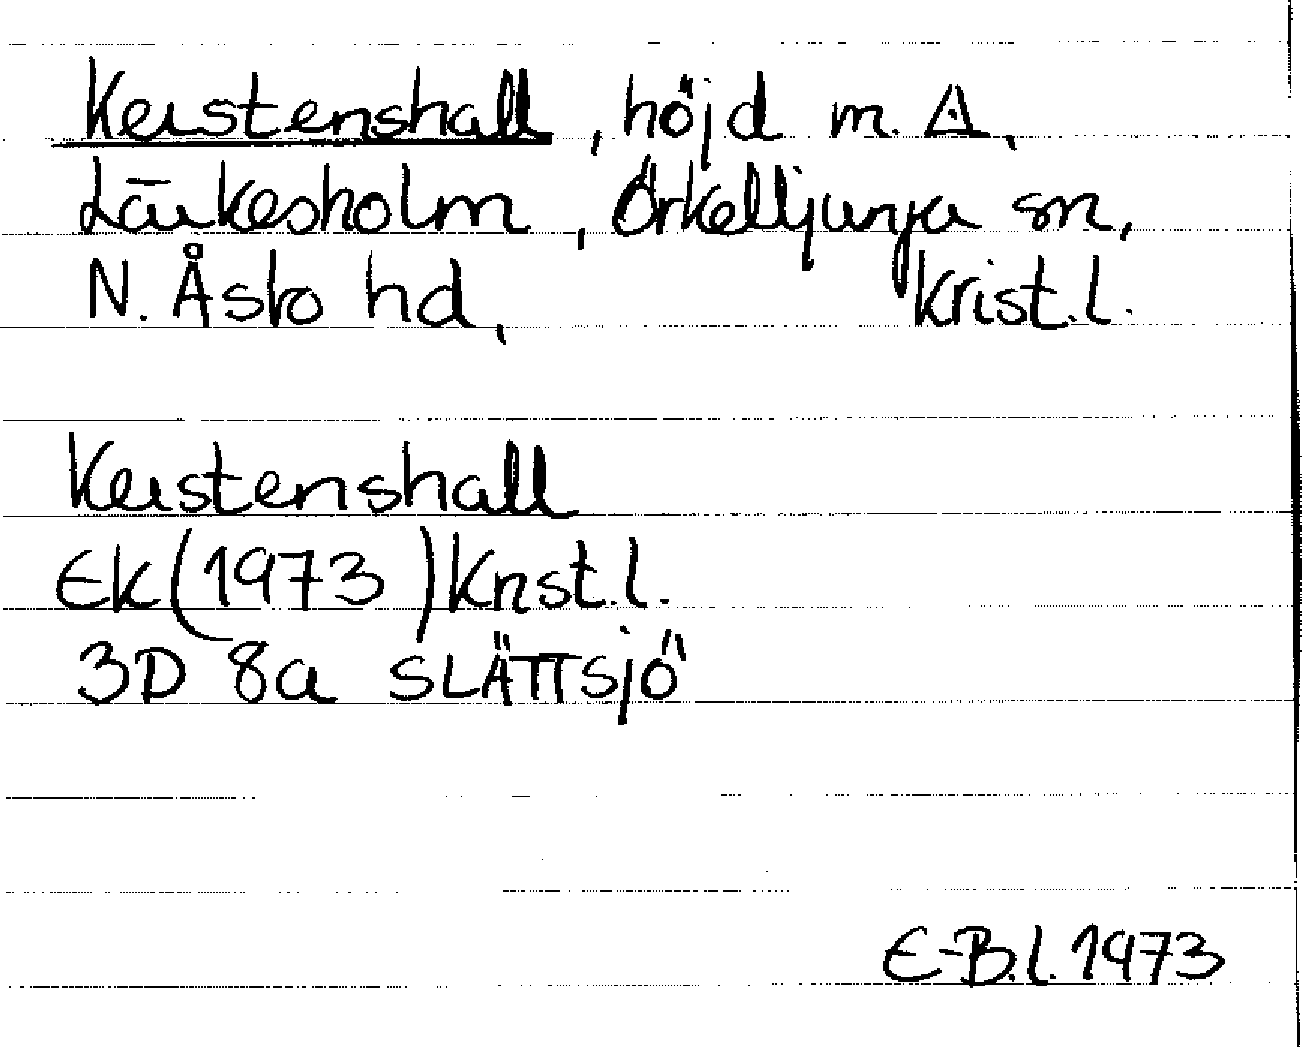 Kerstenshall, höjd m. △,
Lärkesholm, Örkelljunga sn,
N. Åsbo hd, Krist.l.
Kerstenshall
Ek (1973) Krist.l.
3D 8a SLÄTTSJÖ
E-B.L. 1973